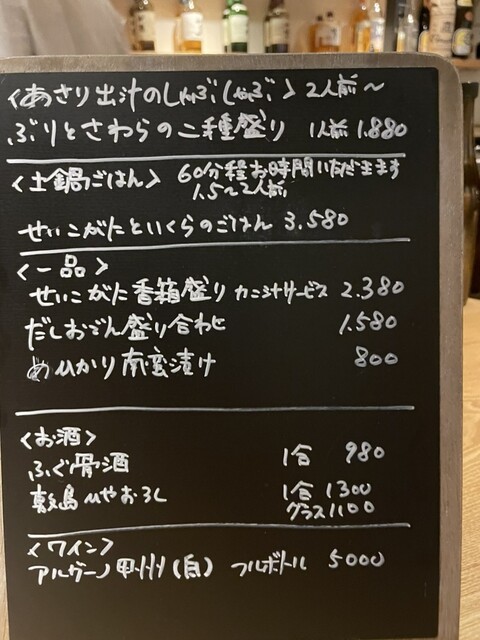 <あさり出汁のしゃぶしゃぶ> 2人前〜
ぶりとさわらの二種盛り 1人前 1.880
<土鍋ごはん> 60分程お時間いただきます
1.5〜2人前
せいこがにといくらのごはん 3.580
<一品>
せいこがに香箱盛り カニミソサービス 2.380
だしおでん盛り合わせ 1.580
めひかり南蛮漬け 800
<お酒>
ふぐ骨酒 1合 980
敷島ひやおろし 1合 1300
グラス 1100
<ワイン>
アルガーノ甲州(白) フルボトル 5000